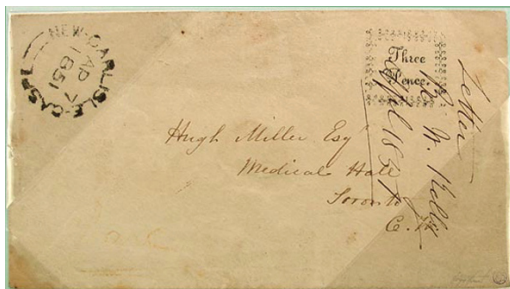 NEW-CARLISLE GASPÉ
AP 7
1851
Three
Pence.
Letter
W. Kelly
April 1851
Hugh Miller Esqr
Medical Hall
Toronto
C. W.